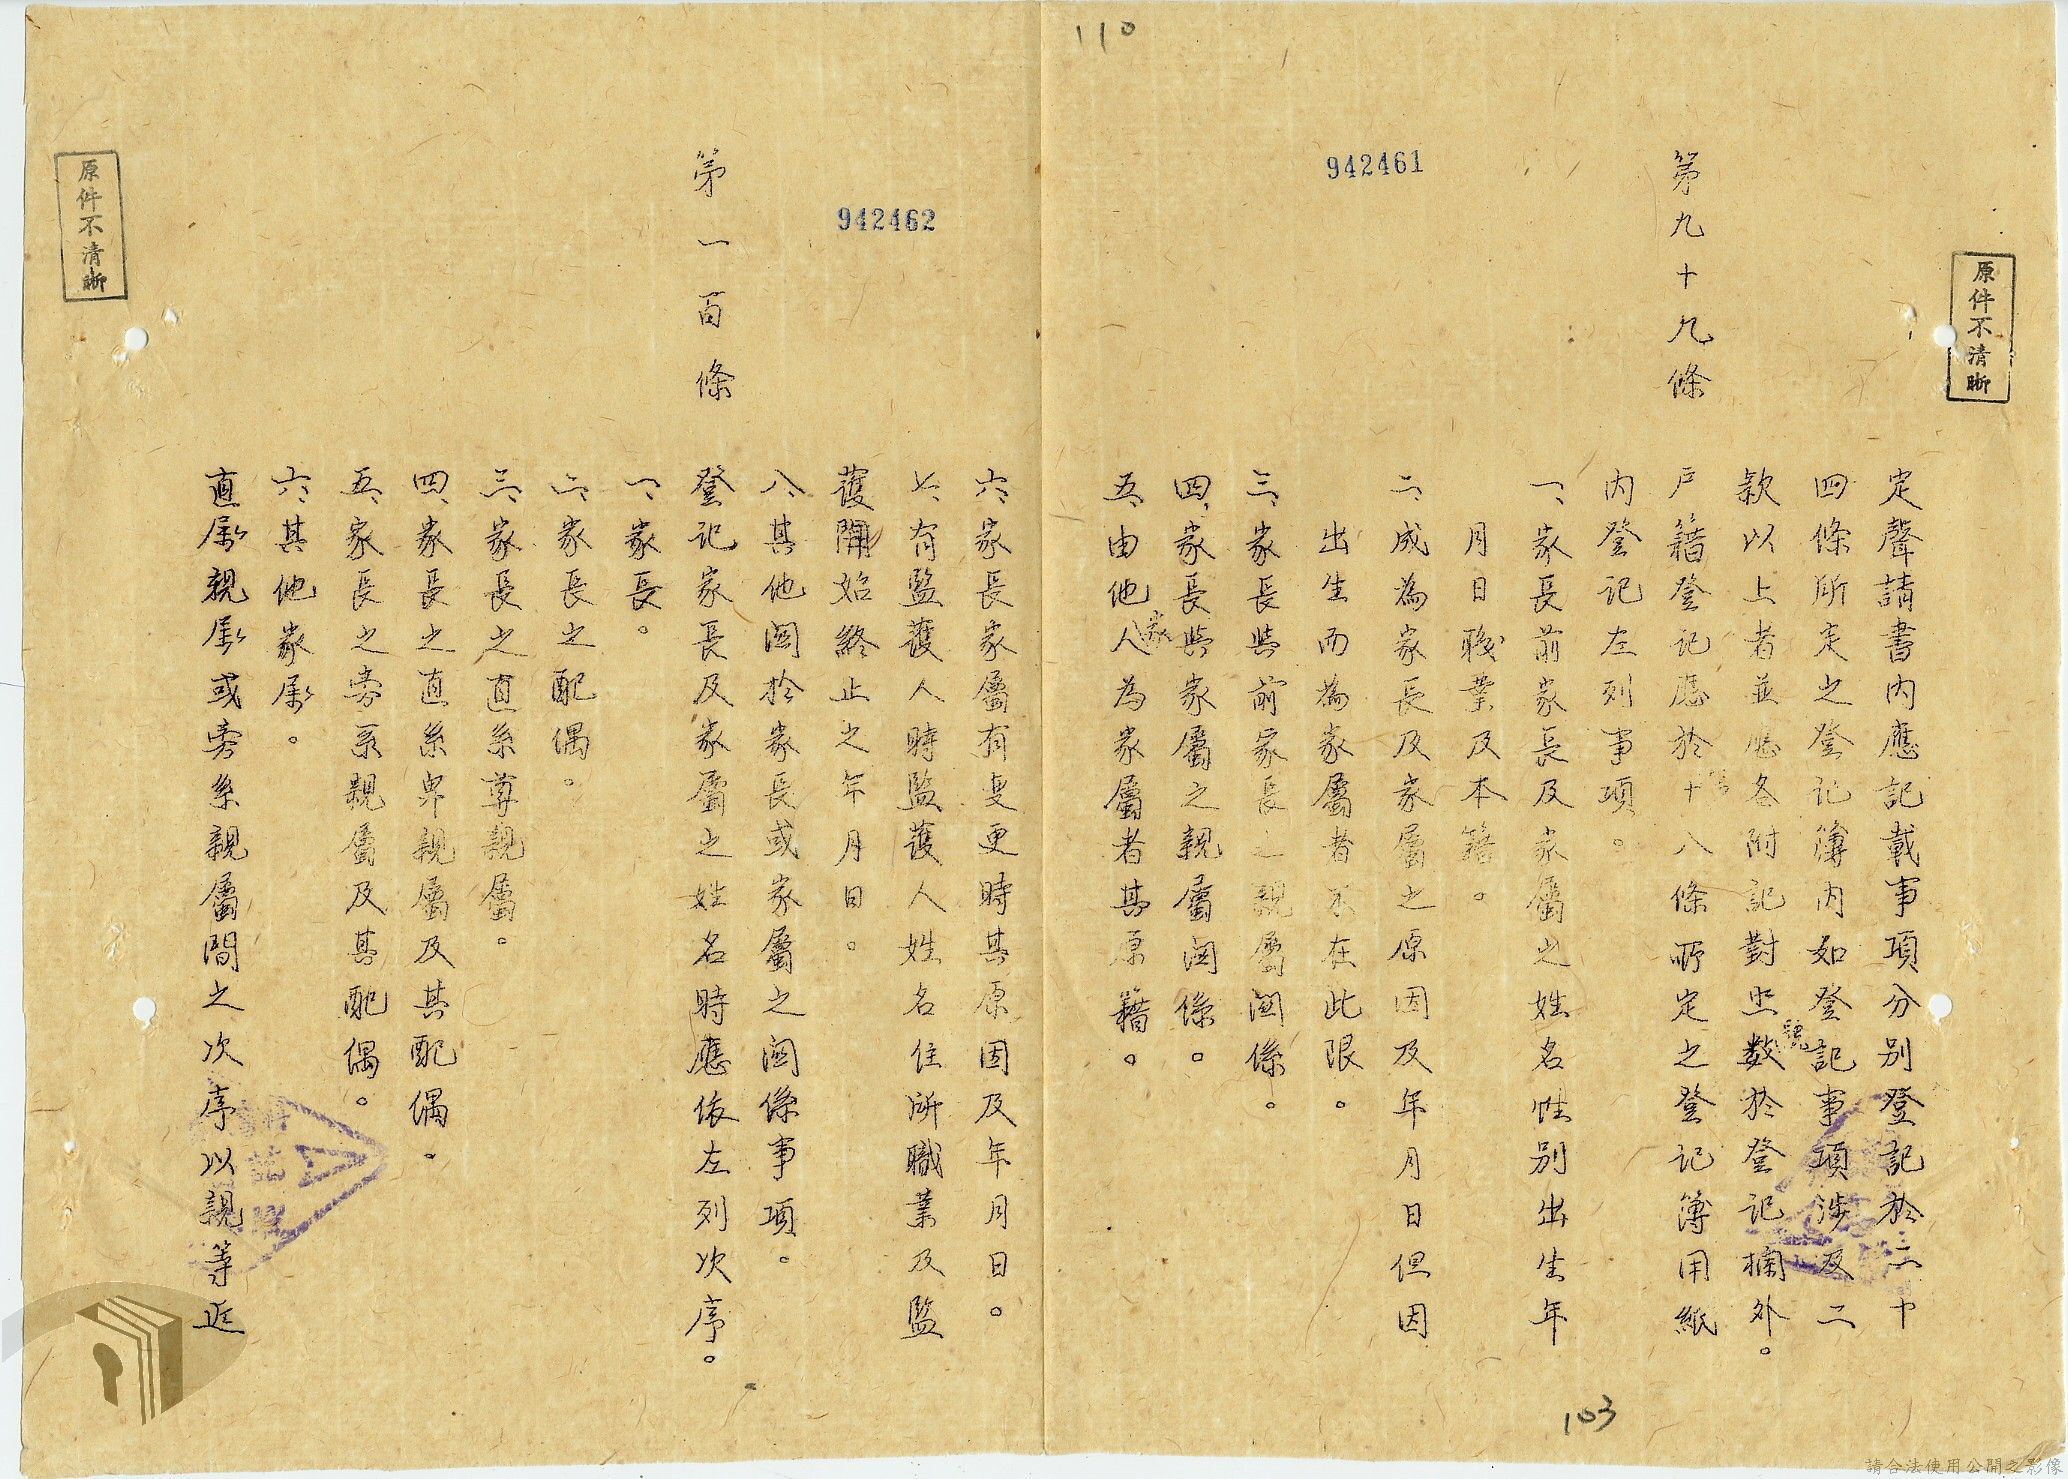 110
942461
原件不清晰
定聲請書內應記載事項分別登記於二十
四條所定之登記簿內如登記事項涉及二
款以上者並應各附記對照號數於登記欄外。
第九十九條
戶籍登記應於十八條所定之登記簿用紙
內登記左列事項。
一、家長前家長及家屬之姓名性別出生年
月日職業及本籍。
二、成為家長及家屬之原因及年月日但因
出生而為家屬者不在此限。
三、家長與前家長之親屬關係。
四、家長與家屬之親屬關係。
五、由他家人為家屬者其原籍。
103
942462
六、家長家屬有變更時其原因及年月日。
七、有監護人時監護人姓名住所職業及監
護開始終止之年月日。
八、其他關於家長或家屬之關係事項。
第一百條
登記家長及家屬之姓名時應依左列次序。
一、家長。
二、家長之配偶。
三、家長之直系尊親屬。
四、家長之直系卑親屬及其配偶。
五、家長之旁系親屬及其配偶。
六、其他家属。
直属親属或旁系親屬間之次序以親等近
原件不清晰
請合法使用公開之影像